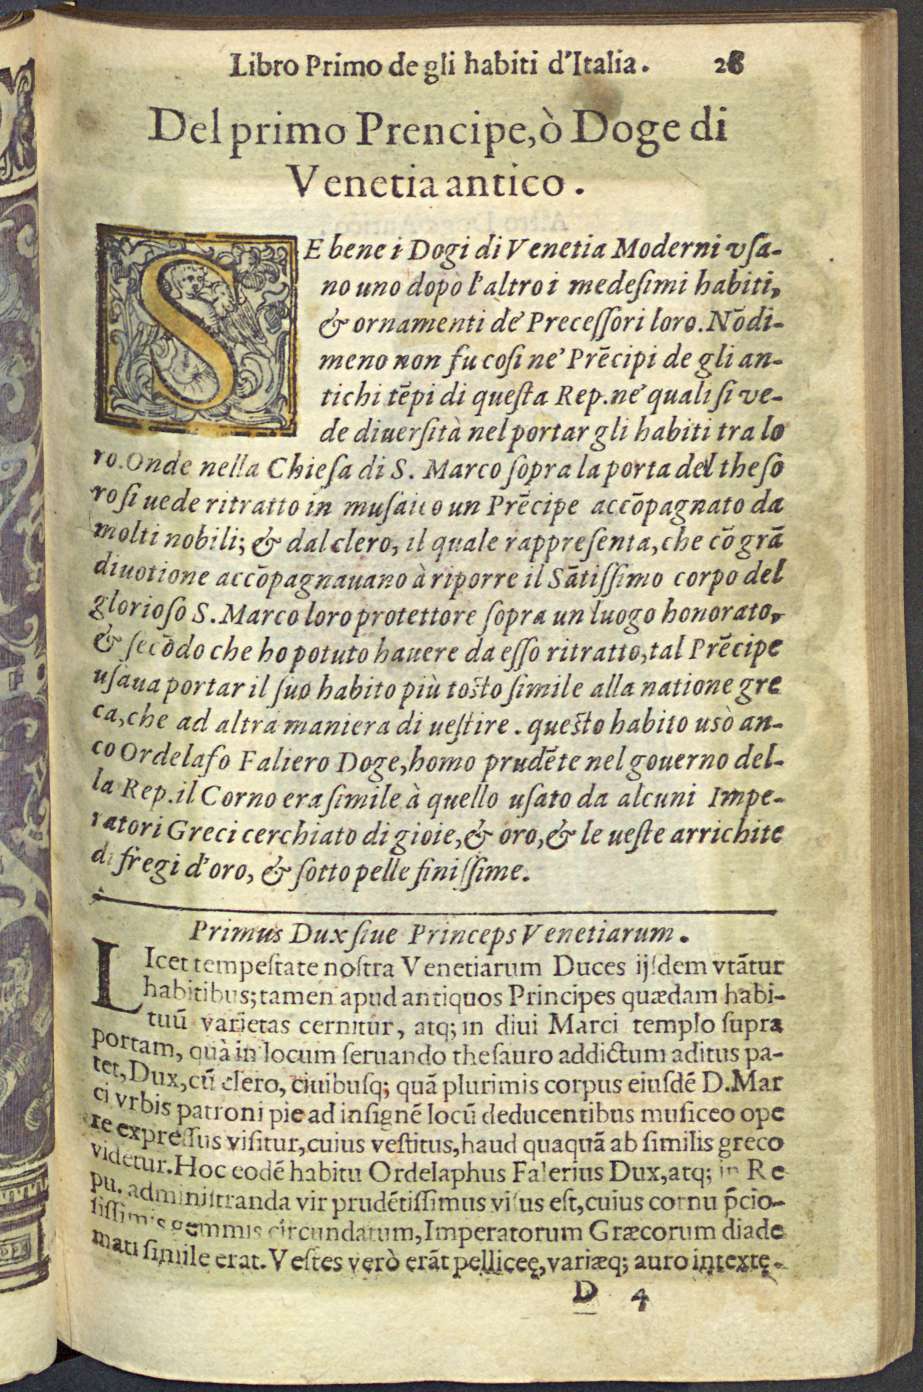 Libro Primo de gli habiti d'Italia. 28
Del primo Prencipe, ò Doge di
Venetia antico.
SE bene i Dogi di Venetia Moderni vſa-
no uno dopò l'altro i medeſimi habiti,
& ornamenti de' Preceſſori loro. Nōdi-
meno non fu coſi ne' Prēcipi de gli an-
tichi tēpi di queſta Rep. ne' quali ſi ve-
de diuerſità nel portar gli habiti tra lo
ro. Onde nella Chieſa di S. Marco ſopra la porta del theſo
ro ſi uede ritratto in muſaico un Prēcipe accōpagnato da
molti nobili; & dal clero, il quale rappreſenta, che cō grā
diuotione accōpagnauano à riporre il Sātiſſimo corpo del
glorioſo S. Marco loro protettore ſopra un luogo honorato,
& ſecōdo che ho potuto hauere da eſſo ritratto, tal Prēcipe
uſaua portar il ſuo habito più toſto ſimile alla natione gre
ca, che ad altra maniera di ueſtire. queſto habito usò an-
co Ordelafo Faliero Doge, homo prudēte nel gouerno del-
la Rep. il Corno era ſimile à quello uſato da alcuni Impe-
ratori Greci cerchiato di gioie, & oro, & le ueſte arrichite
di fregi d'oro, & ſotto pelle finiſſime.
Primus Dux ſiue Princeps Venetiarum.
LIcet tempeſtate noſtra Venetiarum Duces ijſdem vtātur
habitibus; tamen apud antiquos Principes quædam habi-
tuū varietas cernitur, atq; in diui Marci templo ſupra
portam, quà in locum ſeruando theſauro addictum aditus pa-
tet, Dux, cū clero, ciuibuſq; quā plurimis corpus eiuſdē D. Mar
ci vrbis patroni pie ad inſignē locū deducentibus muſiceo ope
re expreſſus viſitur, cuius veſtitus, haud quaquā ab ſimilis greco
videtur. Hoc eodē habitu Ordelaphus Falerius Dux, atq; in Re
pu. adminiſtranda vir prudētiſſimus viſus eſt, cuius cornu p̄cio-
ſiſſimis gemmis circundatum, Imperatorum Græcorum diade
mati ſimile erat. Veſtes verò erāt pelliceę, variæq; auro intextę.
D 4